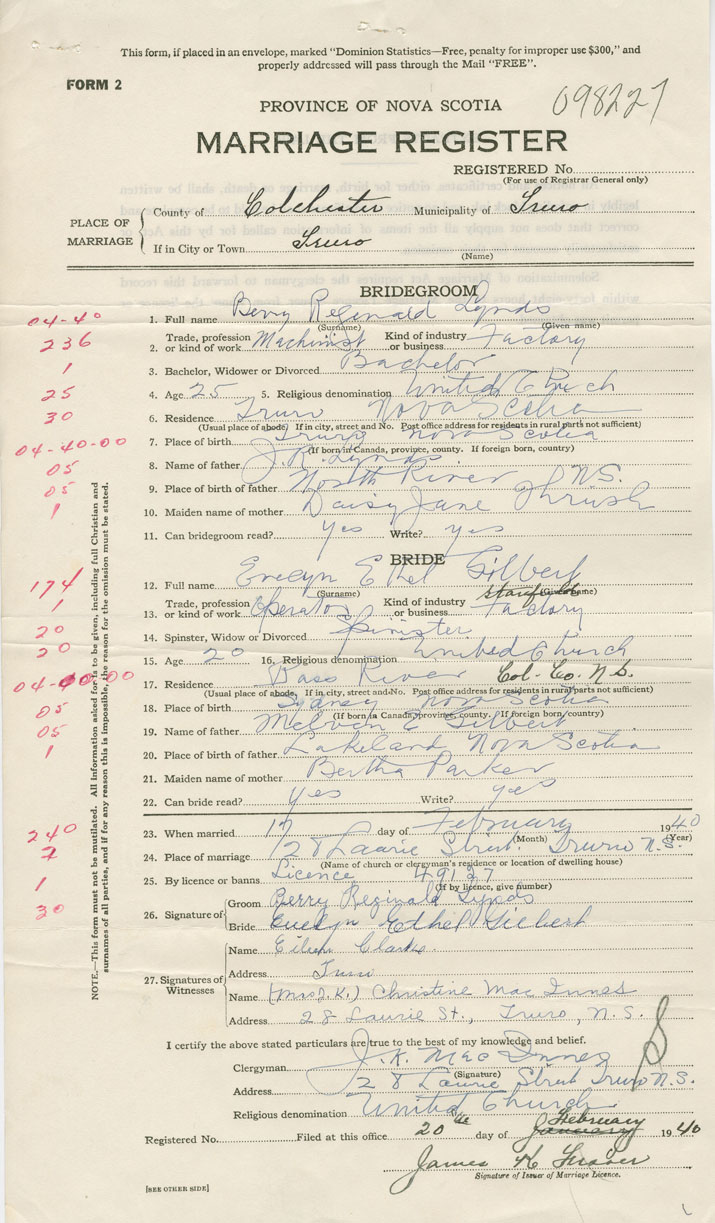 This form, if placed in an envelope, marked "Dominion Statistics—Free, penalty for improper use $300," and
properly addressed will pass through the Mail "FREE".
FORM 2
098227
PROVINCE OF NOVA SCOTIA
MARRIAGE REGISTER
REGISTERED No.
(For use of Registrar General only)
PLACE OF MARRIAGE
County of Colchester Municipality of Truro
If in City or Town Truro
(Name)
BRIDEGROOM
04-40 1. Full name Berry Reginald Lynds
(Surname) (Given name)
236 2. Trade, profession or kind of work Machinist Kind of industry or business Factory
1 3. Bachelor, Widower or Divorced Bachelor
25 4. Age 25 5. Religious denomination United Church
30 6. Residence Truro Nova Scotia
(Usual place of abode) If in city, street and No. Post office address for residents in rural parts not sufficient)
04-40-00 7. Place of birth Truro Nova Scotia
(If born in Canada, province, county. If foreign born, country)
05 8. Name of father J. R. Lynds
05 9. Place of birth of father North River N.S.
1 10. Maiden name of mother Daisy Jane Thrush
11. Can bridegroom read? yes Write? yes
BRIDE
174 12. Full name Evelyn Ethel Gilbert
(Surname) (Given name)
1 13. Trade, profession or kind of work Operator Kind of industry or business Stanfields Factory
20 14. Spinster, Widow or Divorced Spinister
20 15. Age 20 16. Religious denomination United Church
04-40-00 17. Residence Bass River Col. Co. N.S.
(Usual place of abode, If in city, street and No. Post office address for residents in rural parts not sufficient)
05 18. Place of birth Sydney Nova Scotia
(If born in Canada, province, county. If foreign born, country)
05 19. Name of father Melvin E Gilbert
1 20. Place of birth of father Lakeland Nova Scotia
21. Maiden name of mother Bertha Parker
22. Can bride read? yes Write? yes
240 23. When married 17 day of February 1940
(Month) (Year)
24. Place of marriage 28 Laurie Street Truro N.S.
(Name of church or clergyman's residence or location of dwelling house)
1 25. By licence or banns Licence 49127
(If by licence, give number)
30 26. Signature of
Groom Berry Reginald Lynds
Bride Evelyn Ethel Gilbert
27. Signatures of Witnesses
Name Eileen Clarke
Address Truro
Name (Mrs J. K.) Christine Mac Innes
Address 28 Laurie St., Truro, N.S.
I certify the above stated particulars are true to the best of my knowledge and belief.
Clergyman J. K. Mac Innes
(Signature)
Address 28 Laurie Street Truro N.S.
Religious denomination United Church
February
Registered No. Filed at this office 20 day of January 1940
James K Fraser
Signature of Issuer of Marriage Licence.
[SEE OTHER SIDE]
NOTE.—This form must not be mutilated. All information asked for is to be given, including full Christian and
surnames of all parties, and if for any reason this is impossible, the reason for the omission must be stated.